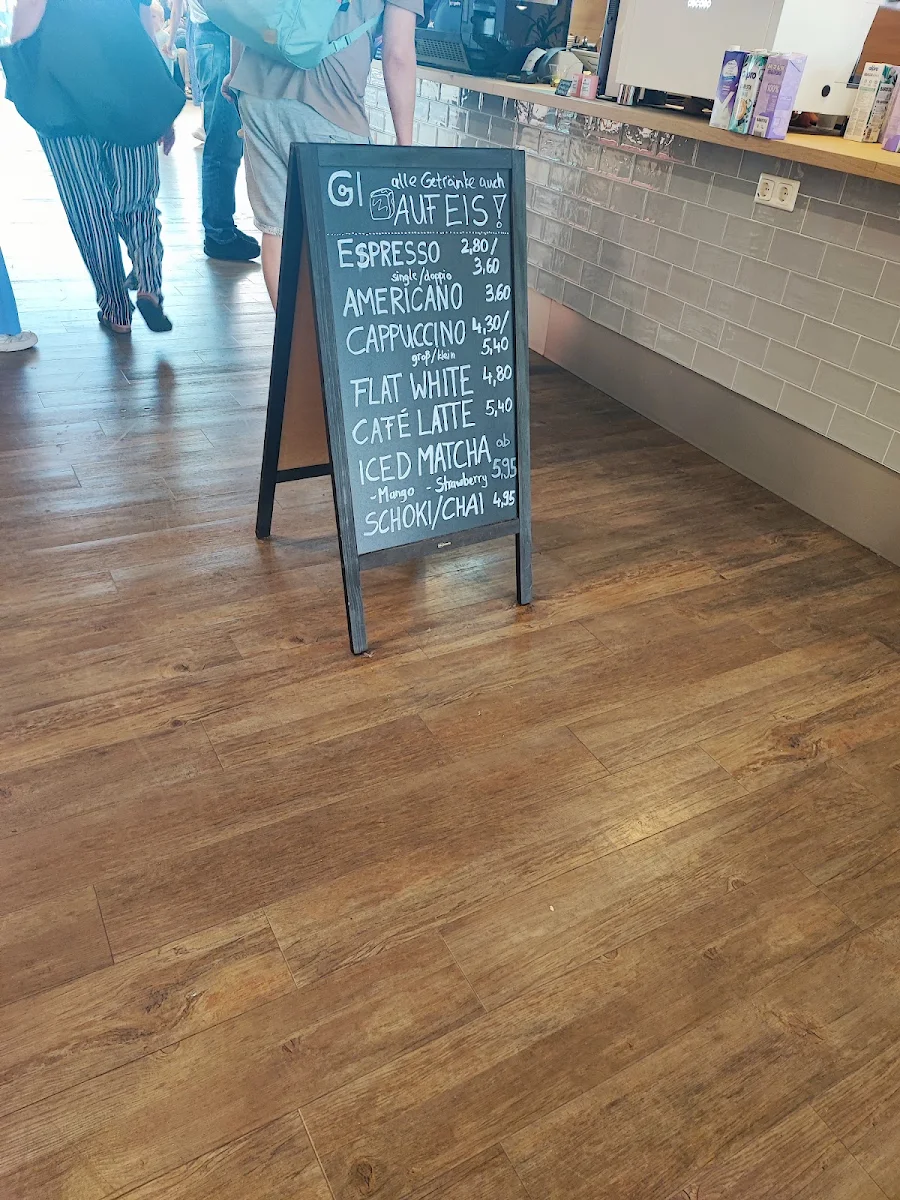 G|
alle Getränke auch
AUF EIS!
ESPRESSO 2,80/
3,60
single/doppio
AMERICANO 3.60
CAPPUCCINO 4,30/
5,40
groß/klein
FLAT WHITE 4,80
CAFÉ LATTE 5,40
ICED MATCHA ab
5,95
-Mango - Strawberry
SCHOKI/CHAI 4,95